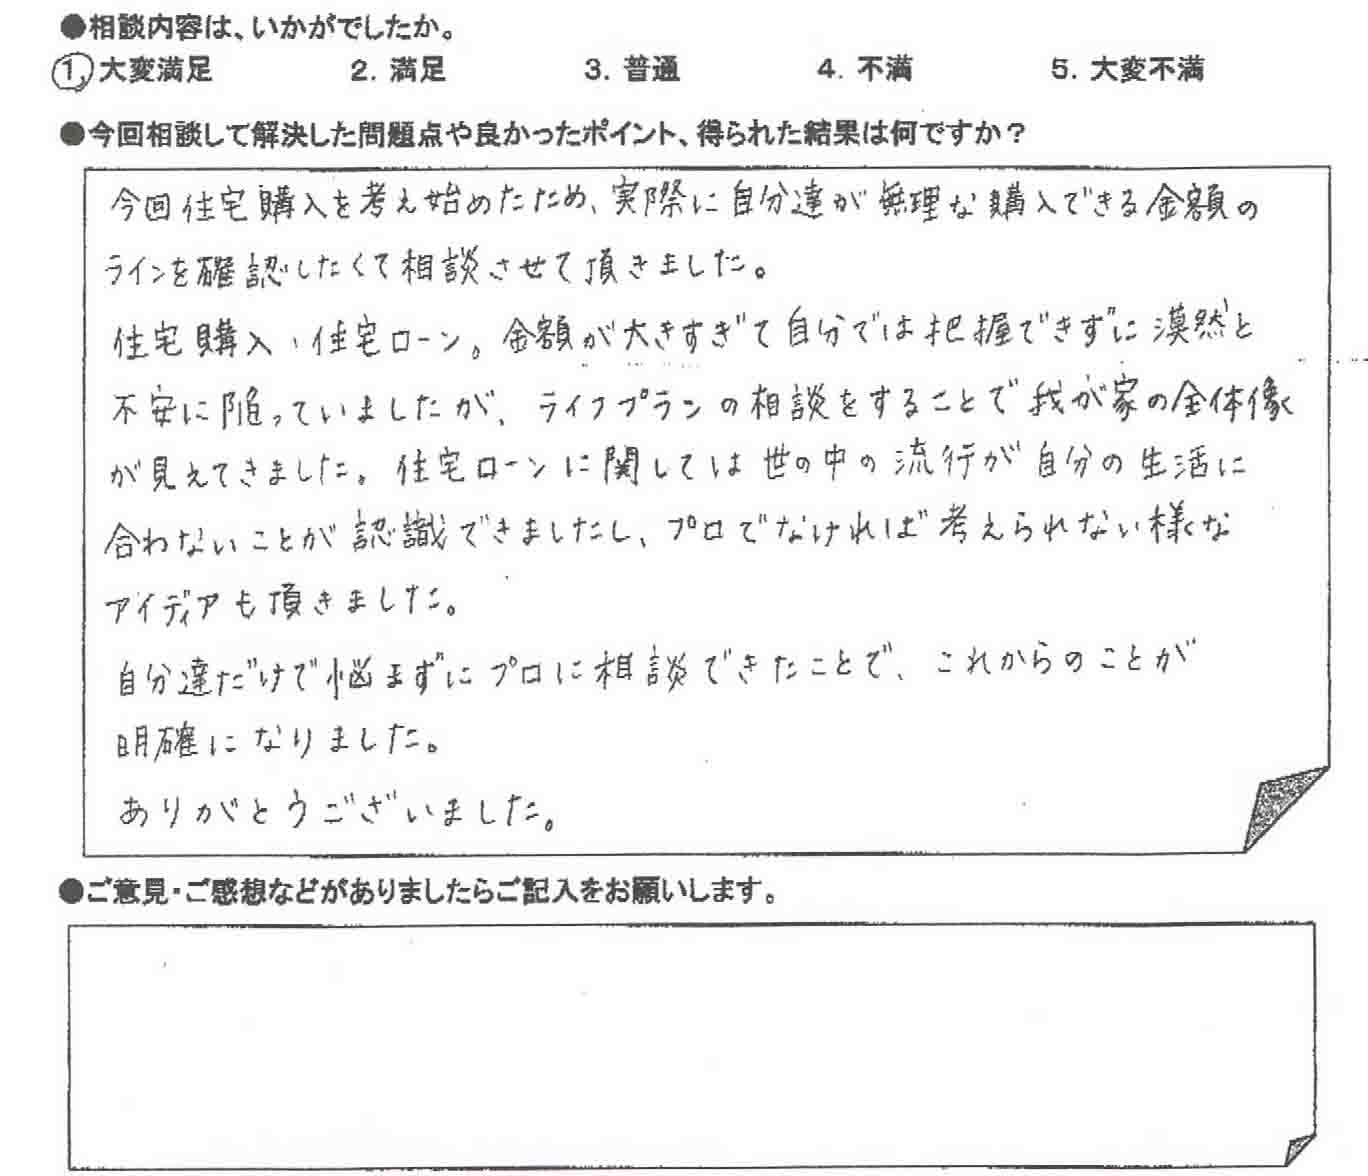 ●相談内容は、いかがでしたか。
1. 大変満足 2. 満足 3. 普通 4. 不満 5. 大変不満
●今回相談して解決した問題点や良かったポイント、得られた結果は何ですか？
今回住宅購入を考え始めたため、実際に自分達が無理な購入できる金額の
ラインを確認したくて相談させて頂きました。
住宅購入、住宅ローン。金額が大きすぎて自分では把握できずに漠然と
不安に陥っていましたが、ライフプランの相談をすることで我が家の全体像
が見えてきました。住宅ローンに関しては世の中の流行が自分の生活に
合わないことが認識できましたし、プロでなければ考えられない様な
アイディアも頂きました。
自分達だけで悩まずにプロに相談できたことで、これからのことが
明確になりました。
ありがとうございました。
●ご意見・ご感想などがありましたらご記入をお願いします。